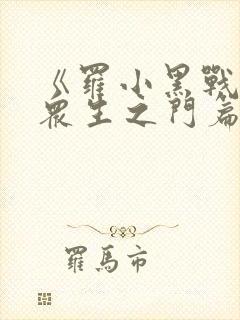 《羅小黑戰
眾生之門篇
羅馬市